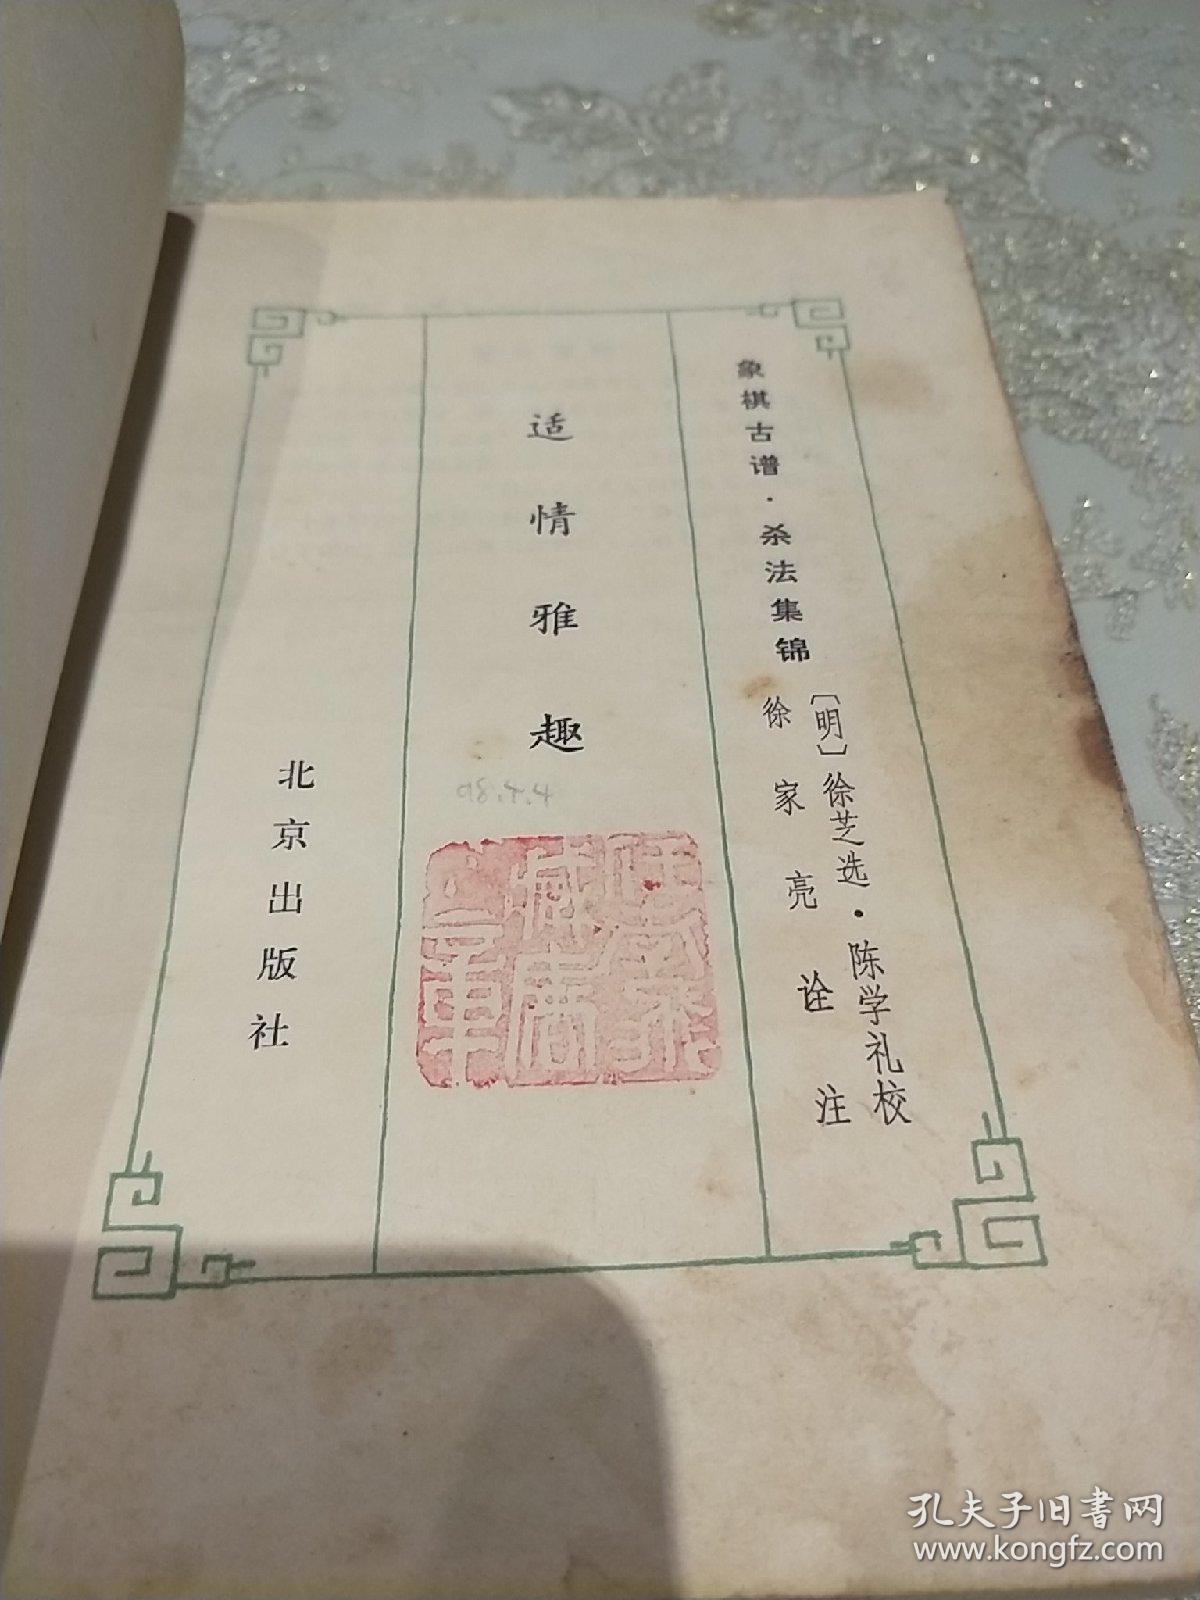 象棋古谱·杀法集锦
〔明〕徐芝选·陈学礼校
徐家亮诠注
适情雅趣
北京出版社
孔夫子旧书网
www.kongfz.com